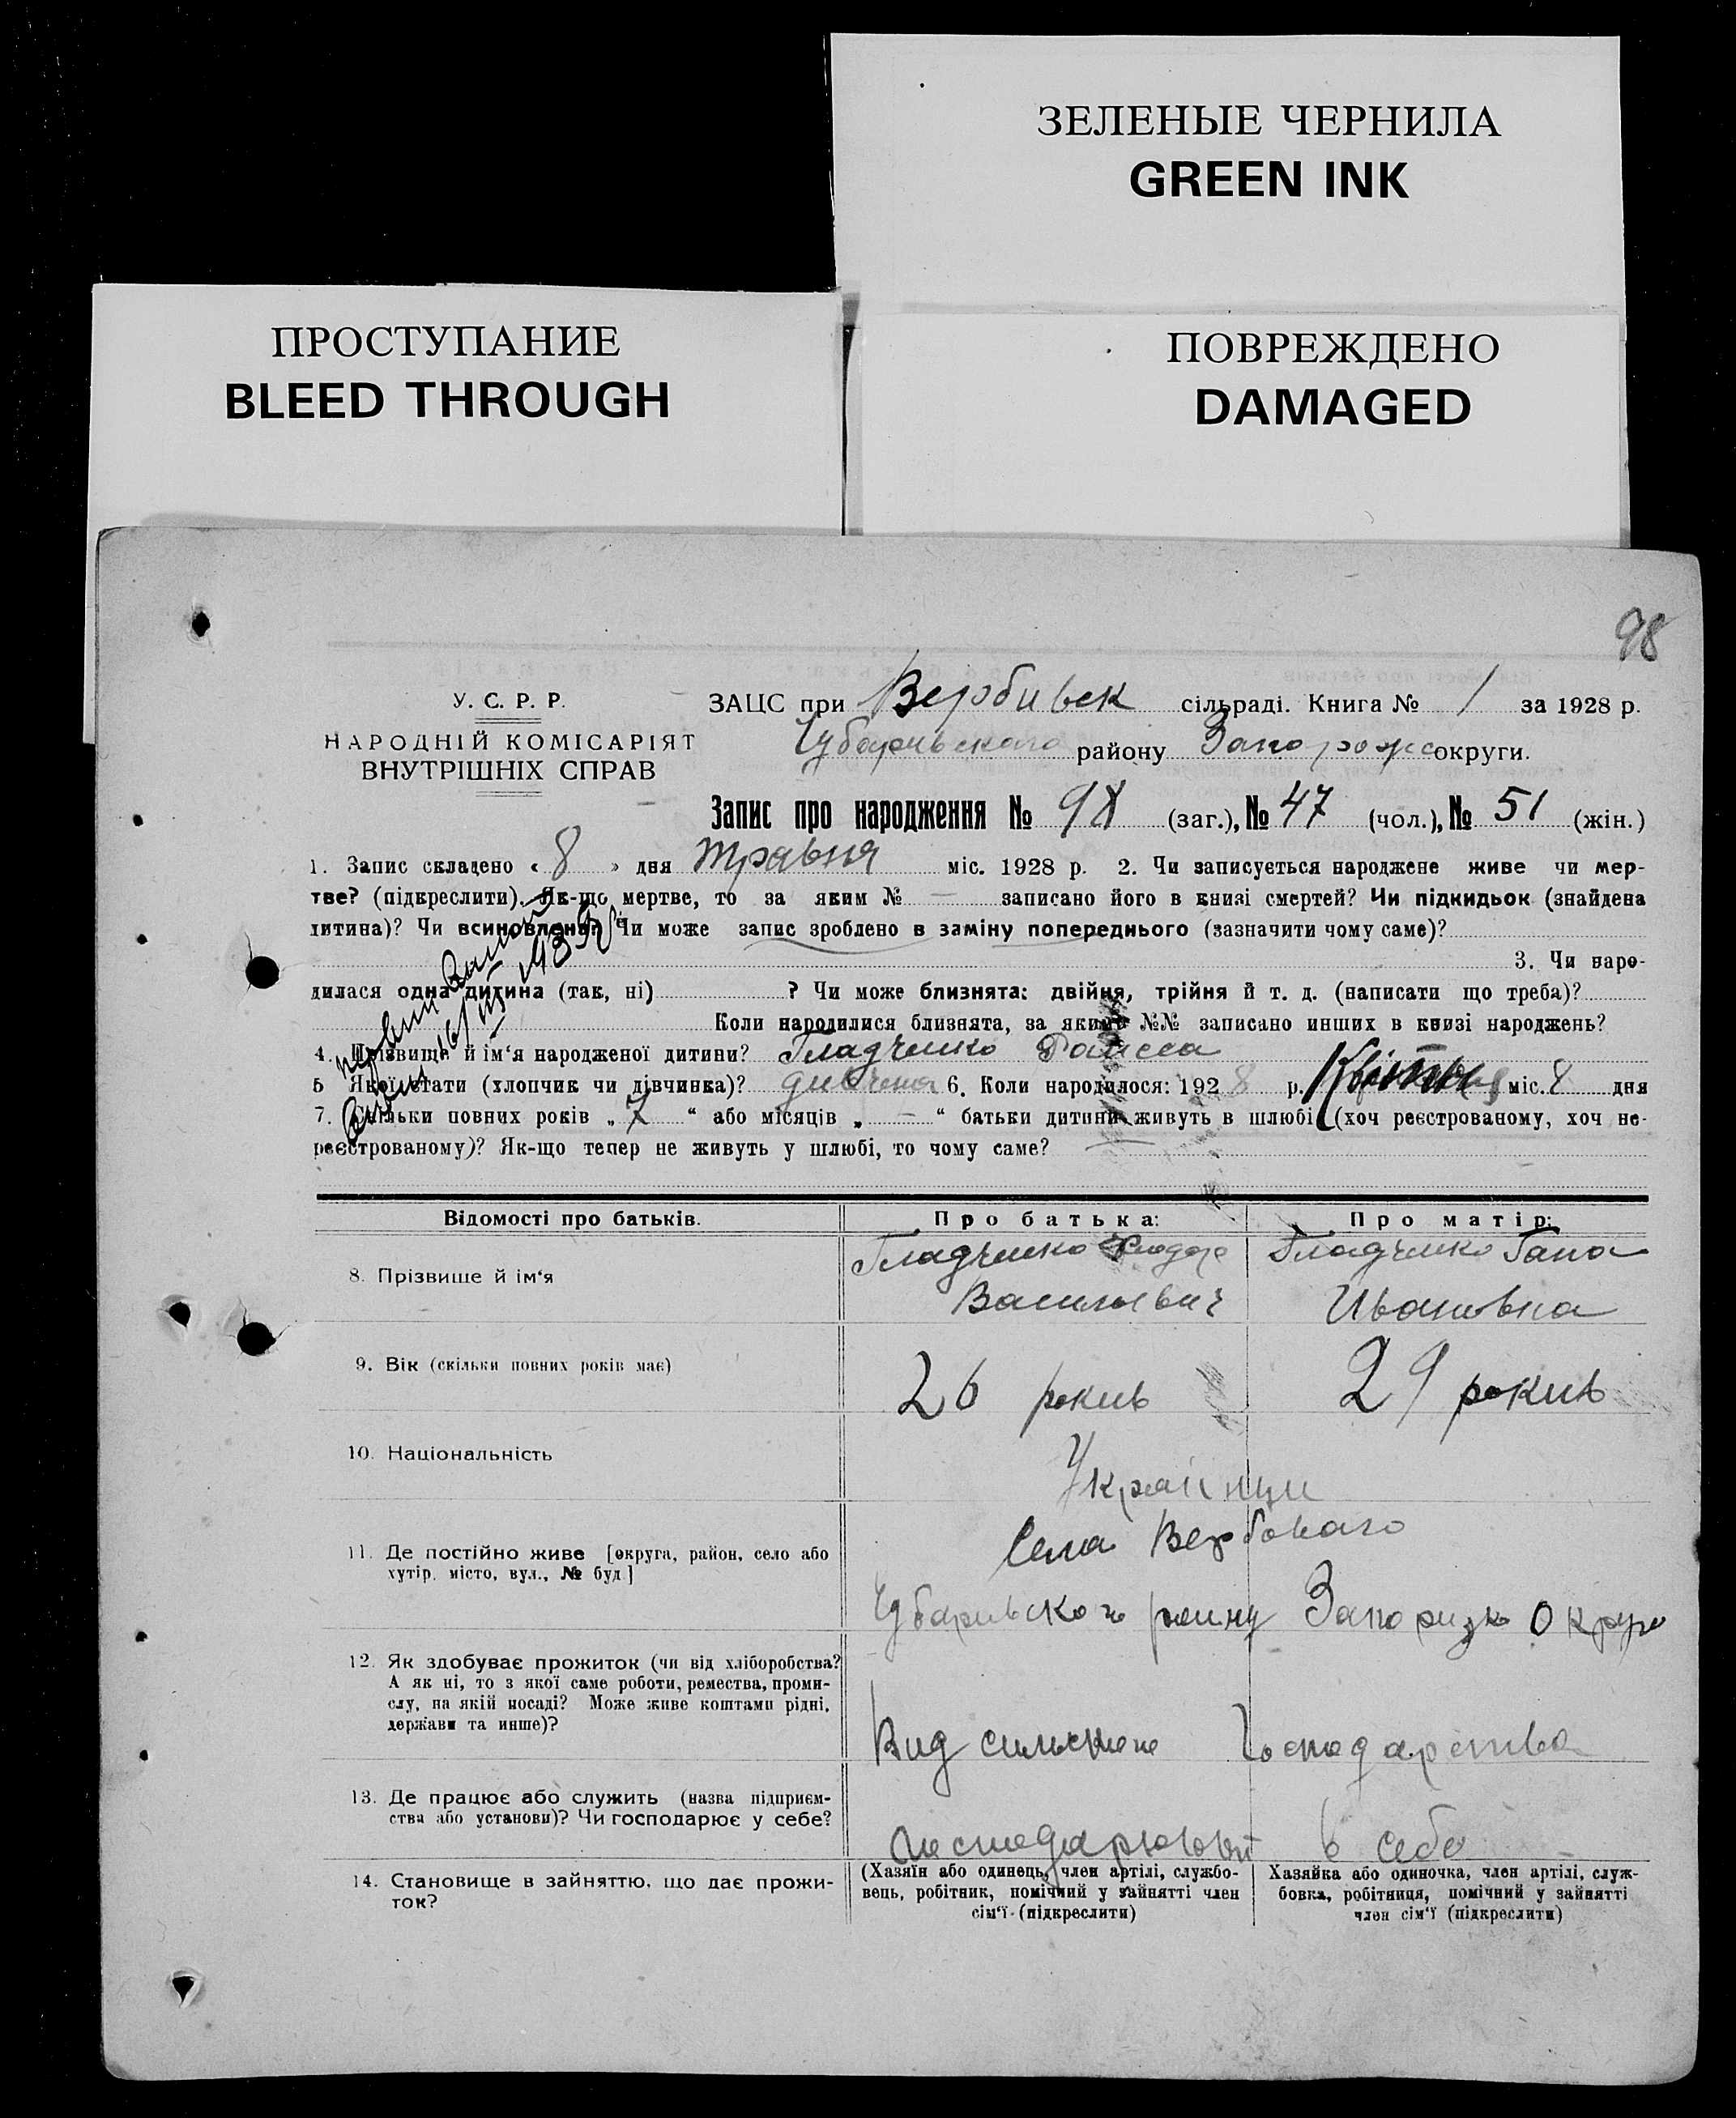 ЗЕЛЕНЫЕ ЧЕРНИЛА
GREEN INK
ПРОСТУПАНИЕ
BLEED THROUGH
ПОВРЕЖДЕНО
DAMAGED
98
У. С. Р. Р.
НАРОДНІЙ КОМІСАРІЯТ
ВНУТРІШНІХ СПРАВ
ЗАЦС при Вербивск сільраді. Книга № 1 за 1928 р.
Чубаривського району Запорож округи.
Запис про народження № 98 (заг.), № 47 (чол.), № 51 (жін.)
1. Запис складено « 8 » дня травня міс. 1928 р. 2. Чи записується народжене живе чи мер-
тве? (підкреслити). Як-що мертве, то за яким № — записано його в книзі смертей? Чи підкидьок (знайдена
дитина)? Чи всиновлена? Чи може запис зроблено в заміну попереднього (зазначити чому саме)?
3. Чи наро-
дилася одна дитина (так, ні) ? Чи може близнята: двійня, трійня й т. д. (написати що треба)?
Коли народилися близнята, за яким №№ записано инших в книзі народжень?
4. Прізвище й ім'я народженої дитини? Гладченко Раисса
5 Якої стати (хлопчик чи дівчинка)? дивчена 6. Коли народилося: 1928 р. міс. 8 дня
7. Скільки повних років „ 7 “ або місяців „ — “ батьки дитини живуть в шлюбі (хоч реєстрованому, хоч не-
реєстрованому)? Як-що тепер не живуть у шлюбі, то чому саме? —
Відомості про батьків.
Про батька:
Про матір:
8. Прізвище й ім'я
Гладченко Федор
Васильевич
Гладченко Гана
Ивановна
9. Вік (скільки повних років має)
26 рокив
29 рокив
10. Національність
Українци
11. Де постійно живе [округа, район, село або
хутір, місто, вул., № буд.]
Села Вербоваго
Чубаривского району Запоризко Округи
12. Як здобуває прожиток (чи від хліборобства?
А як ні, то з якої саме роботи, ремества, проми-
слу, на якій посаді? Може живе коштами рідні,
держави та инше)?
Вид сильского господарства
13. Де працює або служить (назва підприєм-
ства або установи)? Чи господарює у себе?
господарюют в себе
14. Становище в зайняттю, що дає прожи-
ток?
(Хазяїн або одинець, член артілі, службо-
вець, робітник, помічний у зайнятті член
сім'ї (підкреслити)
Хазяйка або одиночка, член артілі, служ-
бовка, робітниця, помічний у зайнятті
член сім'ї (підкреслити)